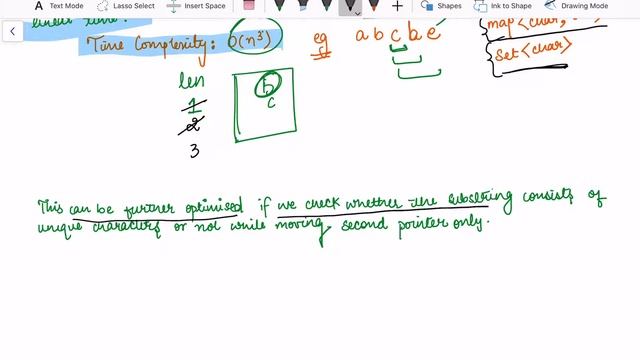 Text Mode
Lasso Select
Insert Space
Shapes
Ink to Shape
Drawing Mode
linear time.
Time Complexity: O(n³)
eg
a b c b e
map<char,
set<char>
len
1
2
3
b
c
This can be further optimised if we check whether the substring consists of
unique characters or not while moving second pointer only.